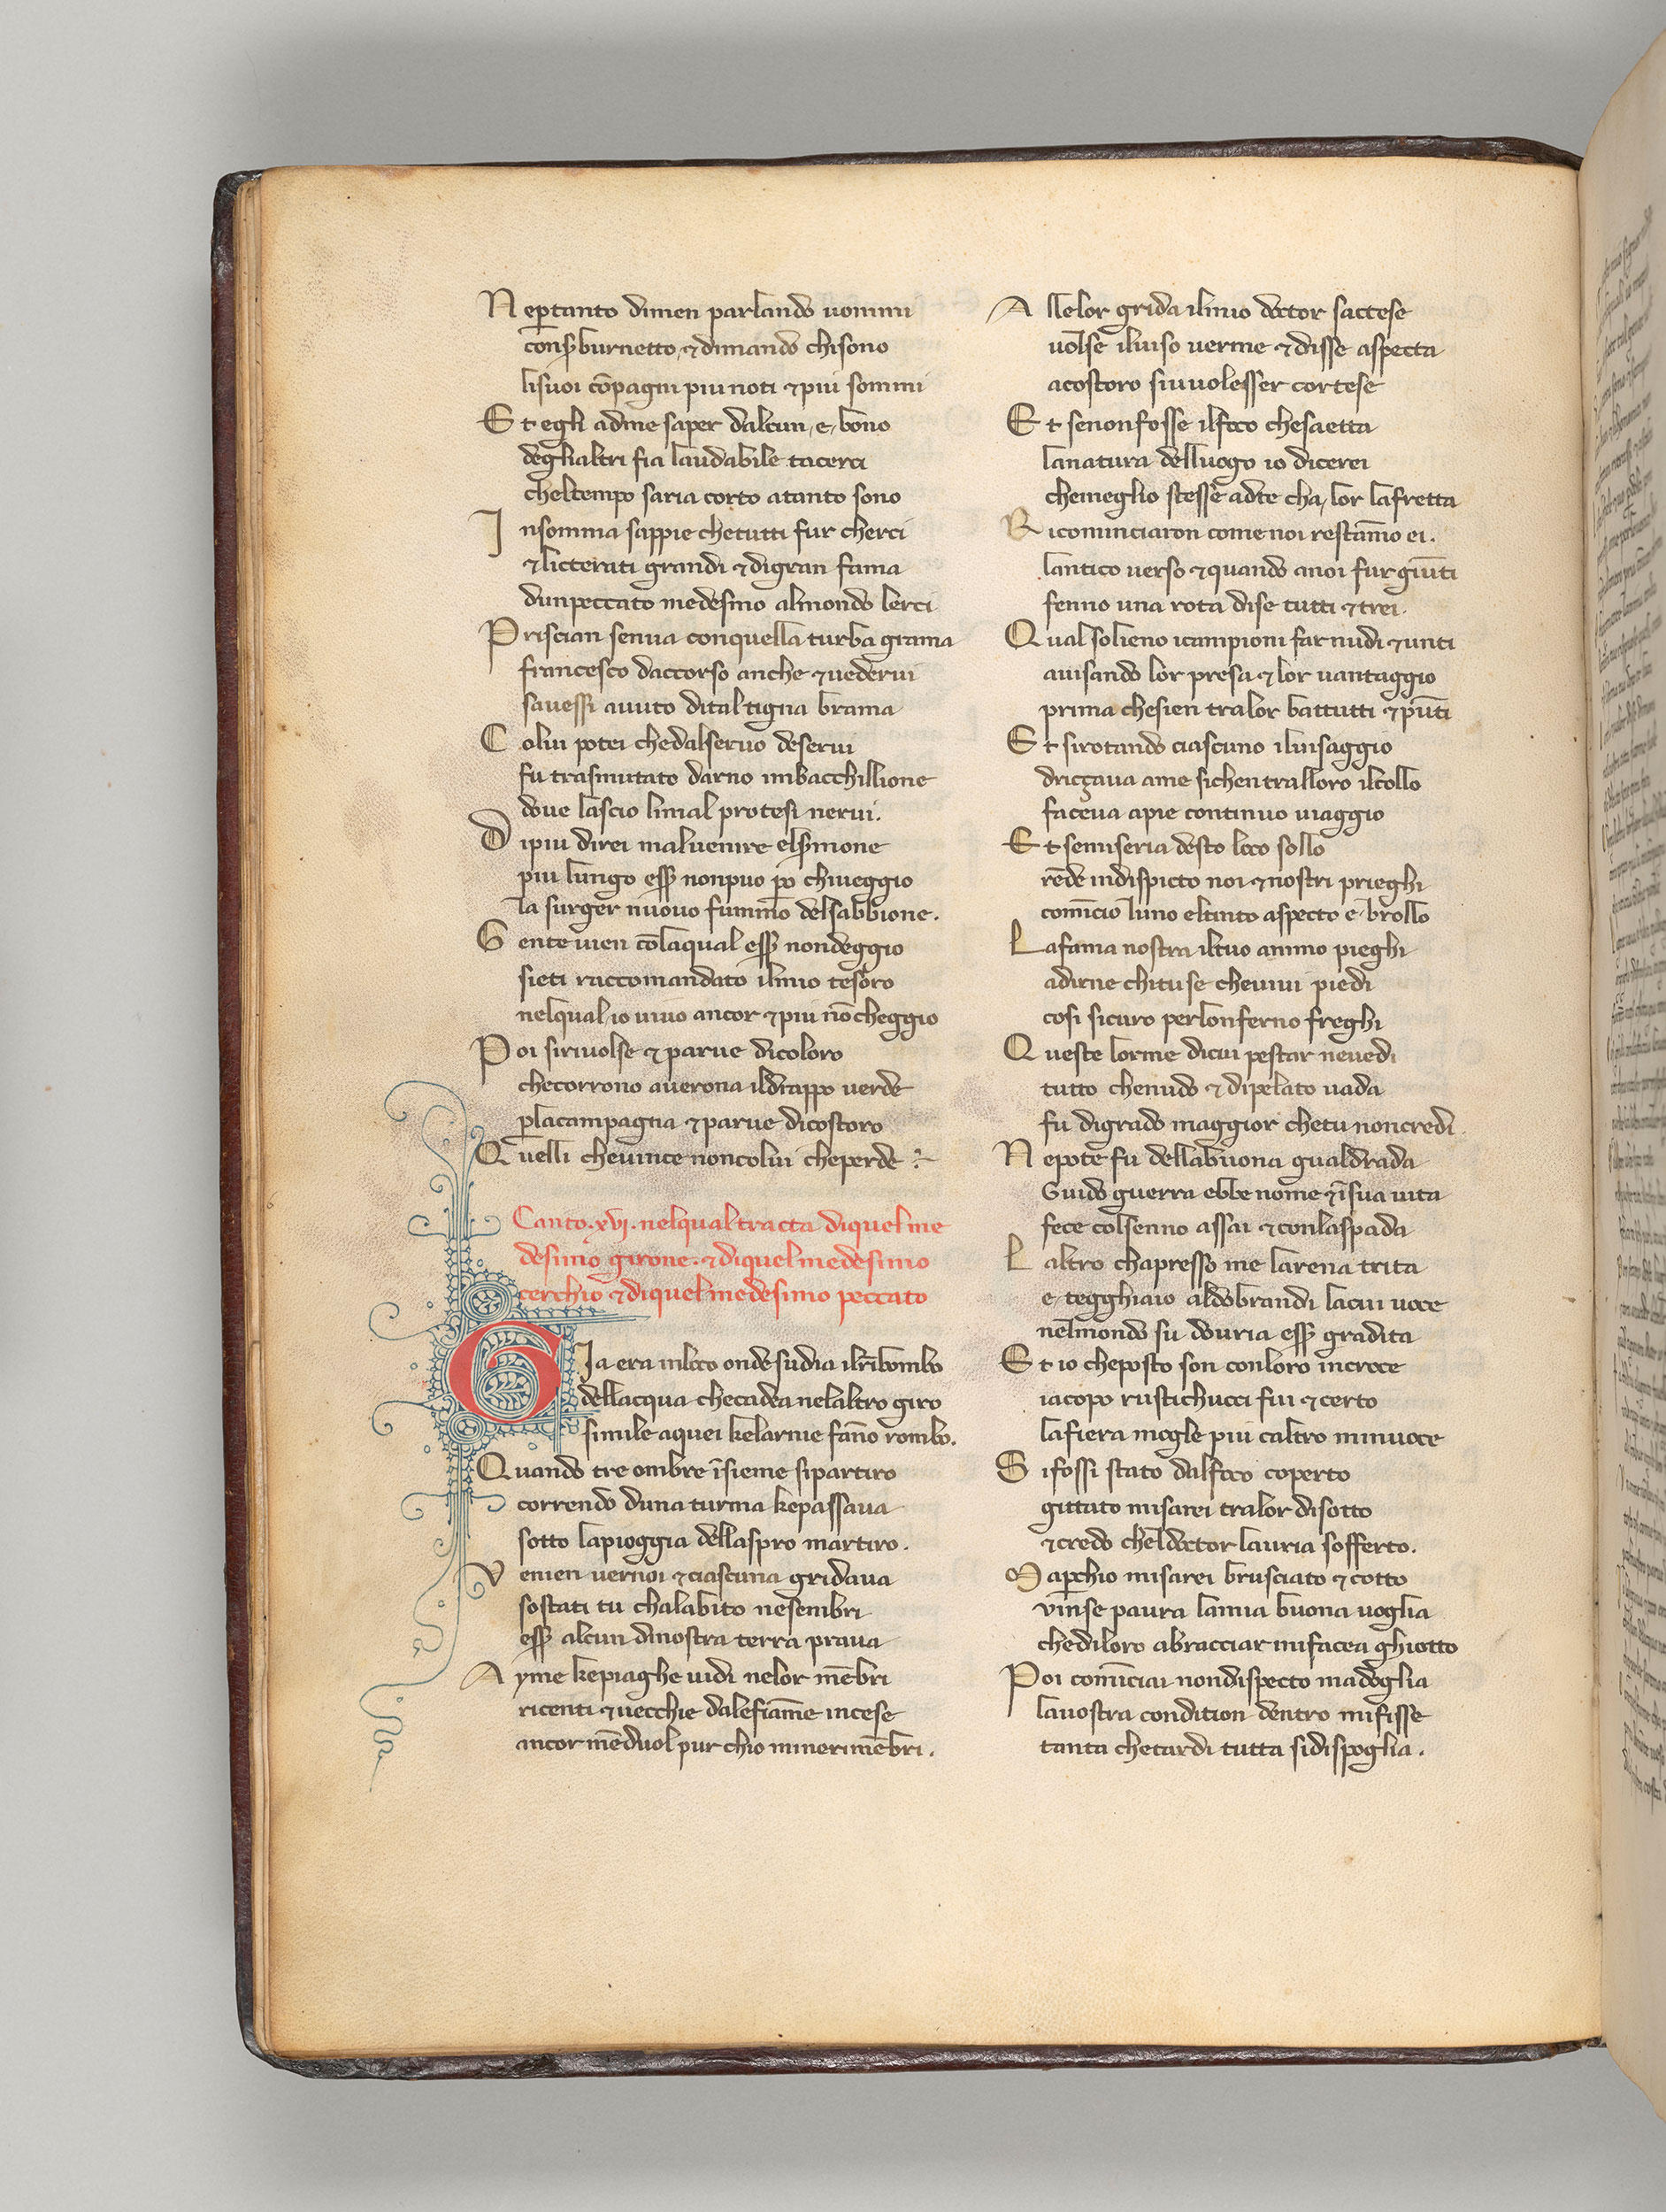 Neptanto dimen parlando uommi
conser burnetto & dimando chisono
lisuoi cōpagni piu noti & piu sommi
Et egli adme saper dalcun, e, bono
deglialtri fia laudabile tacerci
cheltempo saria corto atanto sono
Insomma sappie chetutti fur cherci
& licterati grandi & digran fama
dunpeccato medesmo almondo lerci
Priscian senua conquella turba grama
francesco daccorso anche & uederui
sauessi auuto dital tigna brama
Colui potei chedalseruo deserui
fu trasmutato darno imbacchillione
doue lascio limal protesi nerui.
Dipiu direi maluenire elsermone
piu lungo esser nonpuo po chiueggio
la surger nuouo fummo delsabbione.
Gente uien colaqual esser nondeggio
sieti raccomandato ilmio tesoro
nelqual io uiuo ancor & piu nō cheggio
Poi siriuolse & parue dicoloro
checorrono auerona ildrappo uerde
placampagna & parue dicostoro
Quelli cheuince noncolui cheperde
Canto. xvi. nelqual tracta diquel me
desimo girone. & diquel medesimo
cerchio & diquel medesimo peccato
GIa era inloco onde sudia ilribombo
dellacqua checadea nelaltro giro
simile aquei kelarnie fāno rombo.
Quando tre ombre īsieme sipartiro
correndo duna turma kepassaua
sotto lapioggia dellaspro martiro.
Venien uernoi & ciascuna gridaua
sostati tu chalabito nesembri
esser alcun dinostra terra praua
Ayme kepiaghe uidi nelor mēbri
ricenti & uecchie dalefiāme incese
ancor mēduol pur chio mineri mēbri.
Allelor grida ilmio doctor sactese
uolse iluiso uerme & disse aspecta
acostoro siuuolesser cortese
Et senonfosse ilfoco chesaetta
lanatura delluogo io dicerei
chemeglio stesse adte cha, lor lafretta
Ricominciaron come noi restāmo ei.
lantico uerso & quando anoi fur giūti
fenno una rota dise tutti & trei.
Qual solieno icampioni far nudi & unti
auisando lor presa & lor uantaggio
prima chesien tralor battutti & pūti
Et sirotando ciascuno iluisaggio
driçcaua ame sichen tralloro ilcollo
faceua apie continuo uiaggio
Et semiseria desto loco sollo
rēde indispicto noi & nostri prieghi
comīcio luno eltinto aspecto e brollo
Lafama nostra iltuo animo pieghi
adirne chituse cheuiui piedi
cosi sicuro perlonferno freghi
Queste lorme dicui pestar neuedi
tutto chenudo & dipelato uada
fu digrado maggior chetu noncredi
Nepote fu dellabuona gualdrada
Guido guerra ebbe nome & ī sua uita
fece colsenno assai & conlaspada
Laltro chapresso me larena trita
e tegghiaio aldobrandi lacui uoce
nelmondo su douria esser gradita
Et io cheposto son conloro incroce
iacopo rustichucci fui & certo
lafiera mogle piu caltro minuoce
Sifossi stato dalfoco coperto
gittato misarei tralor disotto
& credo cheldoctor lauria sofferto.
Mapchio misarei brusciato & cotto
vinse paura lamia buona uoglia
chediloro abracciar mifacea ghiotto
Poi comīciai nondispecto madoglia
lauostra condition dentro mifisse
tanta chetardi tutta sidispoglia.